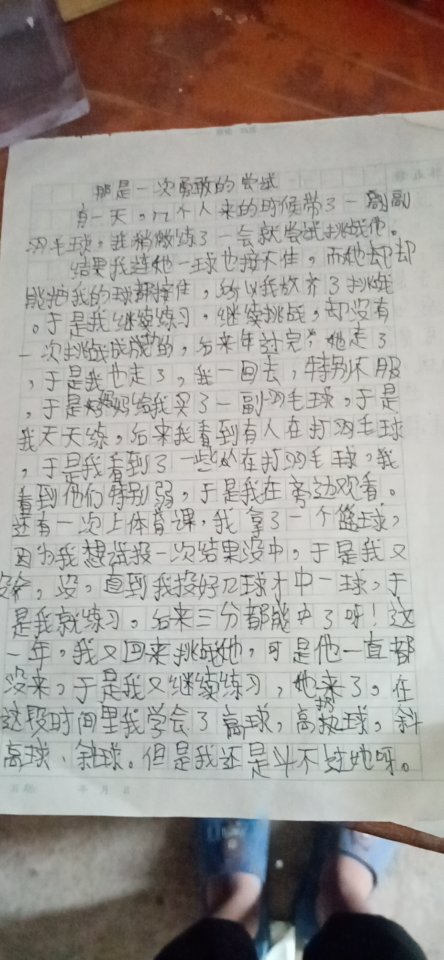 那是一次勇敢的尝试
有一天,几个人来的时候带了一副
羽毛球,我稍微练了一会就尝试挑战他。
结果我连她一球也接不住,而她却
能把我的球都接住,所以我放弃了挑战
。于是我继续练习,继续挑战,却没有
一次挑战成功的,后来年过完,她走了
,于是我也走了,我一回去,特别不服
,于是妈妈给我买了一副羽毛球,于是
我天天练,后来我看到有人在打羽毛球
,于是我看到了一些人在打羽毛球,我
看到他们特别弱,于是我在旁边观看。
还有一次上体育课,我拿了一个篮球,
因为我想试投一次结果没中,于是我又
投,没,直到我投好几球才中一球,于
是我就练习,后来三分都能中了呀!这
一年,我又回来挑战她,可是他一直都
没来,于是我又继续练习,她来了,在
这段时间里我学会了高球,高抛球,斜
高球、斜球。但是我还是斗不过她呀。
年 月 日